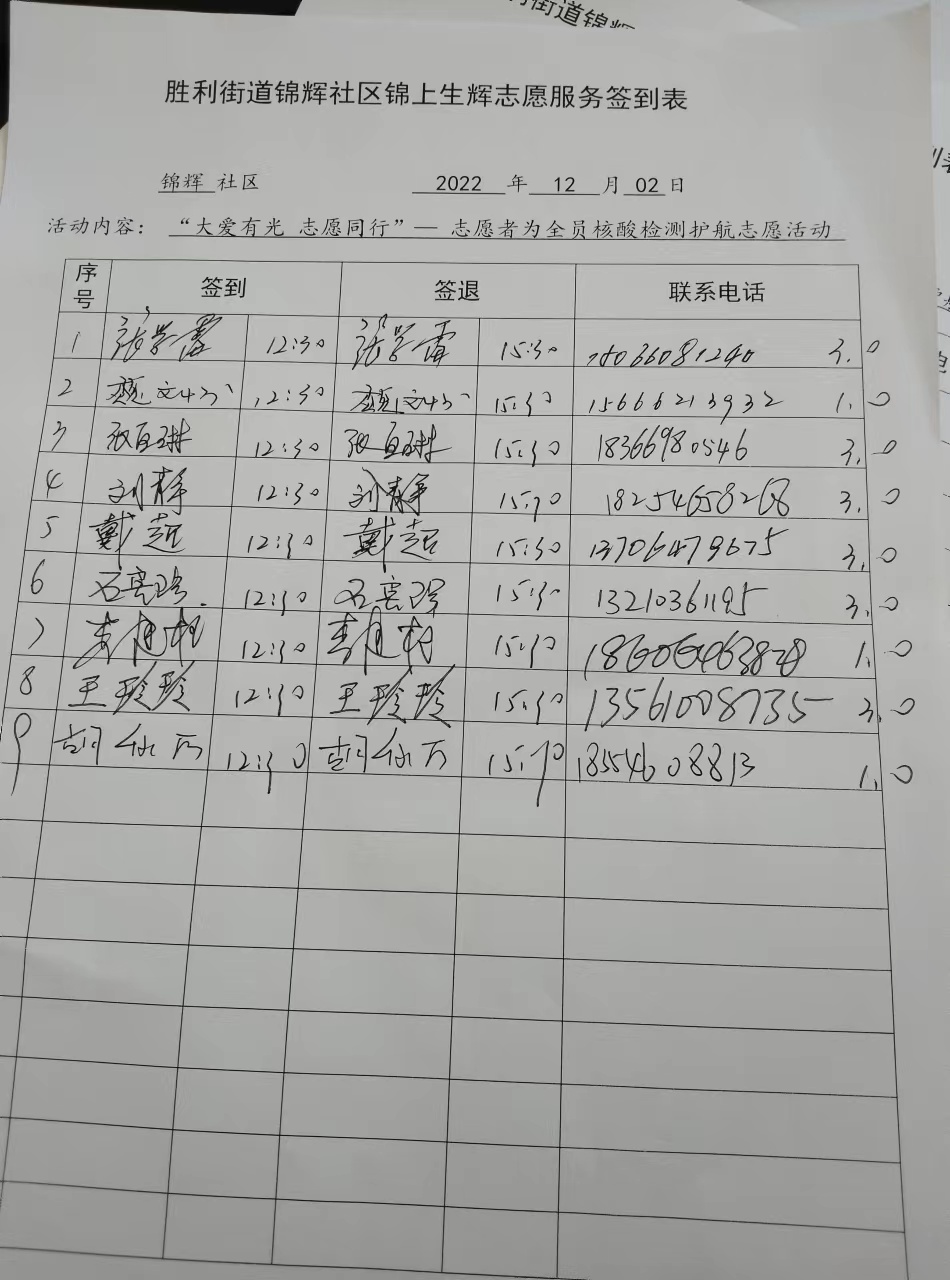 街道锦辉
胜利街道锦辉社区锦上生辉志愿服务签到表
锦辉 社区 2022 年 12 月 02 日
活动内容： “大爱有光 志愿同行”— 志愿者为全员核酸检测护航志愿活动
序号 签到 签退 联系电话
1 张学雷 12:30 张学雷 15:30 18036081240 3.0
2 12:30 15:30 15666213932 1.0
3 12:30 15:30 18366980546 3.0
4 刘静 12:30 刘静 15:30 18254658268 3.0
5 戴超 12:30 戴超 15:30 13706479675 3.0
6 12:30 15:30 13210361195 3.0
7 12:30 15:30 1.0
8 王玲玲 12:30 王玲玲 15:30 13561008735 3.0
9 12:30 15:30 18554608813 1.0